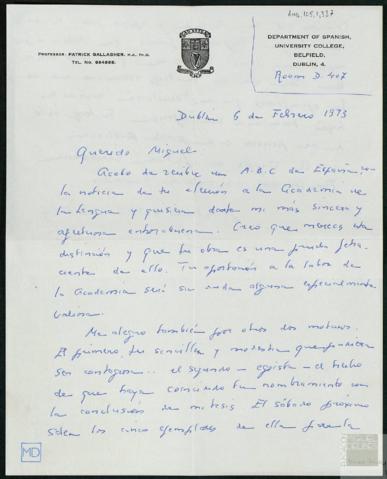 PROFESSOR: PATRICK GALLAGHER, M.A., Ph.D.
TEL. No.
DEPARTMENT OF SPANISH,
UNIVERSITY COLLEGE,
BELFIELD,
DUBLIN, 4.
Room D. 407
Dublin 6 de Febrero 1973
Querido Miguel
Acabo de recibir un A.B.C de España, con
la noticia de tu elección a la Academia de
la Lengua y quisiera darte mi más sincera y
afectuosa enhorabuena. Creo que mereces esta
distinción y que tu obra es una prueba feha-
ciente de ello. Tu aportación a la labor de
la Academia será sin duda alguna especialmente
valiosa.
Me alegro también por otros dos motivos.
El primero, tu sencillez y modestia que
ser contagiosa... el segundo - egoista - el hecho
de que haya coincidido tu nombramiento con
la conclusión de mi tesis El sábado próximo
salen los cinco ejemplares de ella para la
MD